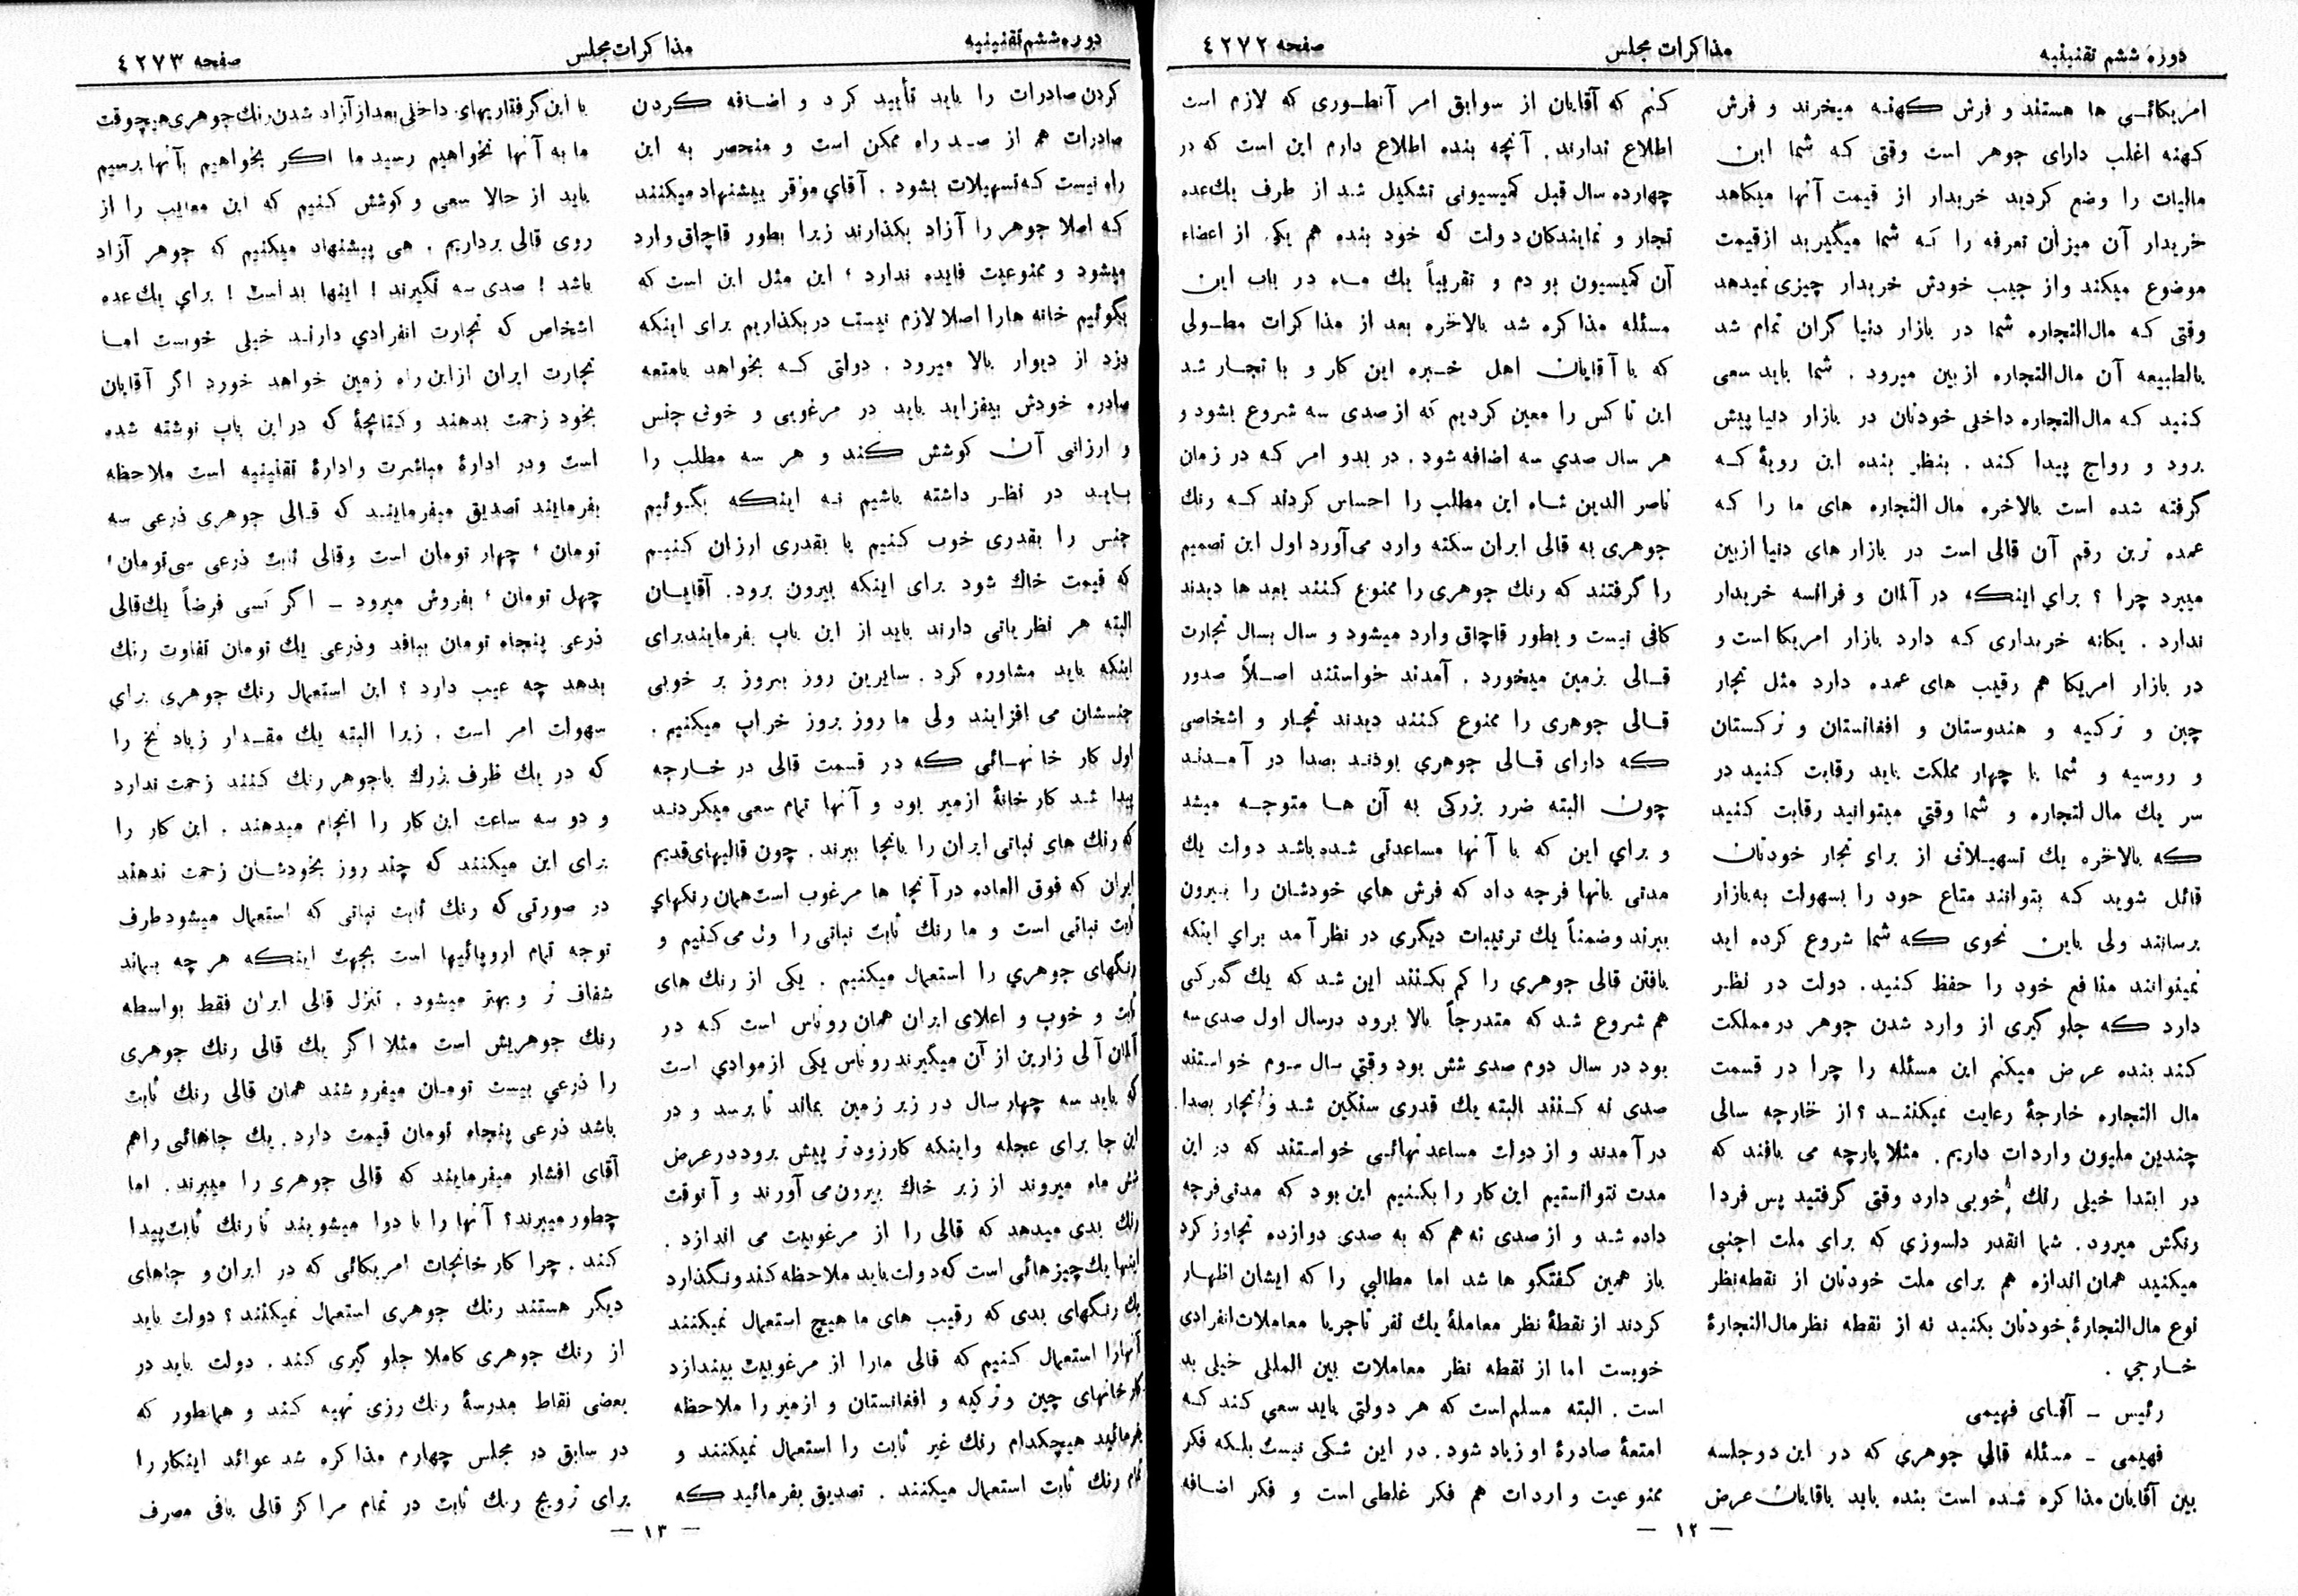 دورهٔ ششم تقنینیه
مذاکرات مجلس
صفحه ٤٢٧٢
امریکائی ها هستند و فرش کهنه میخرند و فرش
کهنه اغلب دارای جوهر است وقتی که شما این
مالیات را وضع کردید خریدار از قیمت آنها میکاهد
خریدار آن میزان تعرفه را که شما میگیرید از قیمت
موضوع میکند و از جیب خودش خریدار چیزی نمیدهد
وقتی که مال‌التجاره شما در بازار دنیا گران تمام شد
بالطبیعه آن مال‌التجاره از بین میرود . شما باید سعی
کنید که مال‌التجاره داخلی خودتان در بازار دنیا پیش
برود و رواج پیدا کند . بنظر بنده این رویهٔ که
گرفته شده است بالاخره مال التجاره های ما را که
عمده ترین رقم آن قالی است در بازار های دنیا از بین
میبرد چرا ؟ برای اینکه در آلمان و فرانسه خریدار
ندارد . یکانه خریداری که دارد بازار امریکا است و
در بازار امریکا هم رقیب های عمده دارد مثل تجار
چین و ترکیه و هندوستان و افغانستان و ترکستان
و روسیه و شما با چهار مملکت باید رقابت کنید در
سر یك مال لتجاره و شما وقتی میتوانید رقابت کنید
که بالاخره یك تسهیلاتی از برای تجار خودتان
قائل شوید که بتوانند متاع خود را بسهولت به بازار
برسانند ولی باین نحوی که شما شروع کرده اید
نمیتوانند منافع خود را حفظ کنید . دولت در نظر
دارد که جلو گیری از وارد شدن جوهر در مملکت
کند بنده عرض میکنم این مسئله را چرا در قسمت
مال التجاره خارجهٔ رعایت نمیکنند ؟ از خارجه سالی
چندین ملیون واردات داریم . مثلا پارچه می بافند که
در ابتدا خیلی رنك خوبی دارد وقتی گرفتید پس فردا
رنگش میرود . شما انقدر دلسوزی که برای ملت اجنبی
میکنید همان اندازه هم برای ملت خودتان از نقطه نظر
نوع مال‌التجارهٔ خودتان بکنید نه از نقطه نظر مال‌التجارهٔ
خارجی .
رئیس ـ آقای فهیمی
فهیمی ـ مسئله قالی جوهری که در این دو جلسه
بین آقایان مذاکره شده است بنده باید باقایان عرض
کنم که آقایان از سوابق امر آنطوری که لازم است
اطلاع ندارند . آنچه بنده اطلاع دارم این است که در
چهارده سال قبل کمیسیونی تشکیل شد از طرف یك‌عده
تجار و نمایندکان دولت که خود بنده هم یکی از اعضاء
آن کمیسیون بودم و تقریباً یك ماه در باب این
مسئله مذاکره شد بالاخره بعد از مذاکرات مطولی
که با آقایان اهل خبره این کار و با تجار شد
این تاکس را معین کردیم که از صدی سه شروع بشود و
هر سال صدی سه اضافه شود . در بدو امر که در زمان
ناصر الدین شاه این مطلب را احساس کردند که رنك
جوهری به قالی ایران سکته وارد می‌آورد اول این تصمیم
را گرفتند که رنك جوهری را ممنوع کنند بعد ها دیدند
کافی نیست و بطور قاچاق وارد میشود و سال بسال تجارت
قالی بزمین میخورد . آمدند خواستند اصلاً صدور
قالی جوهری را ممنوع کنند دیدند تجار و اشخاصی
که دارای قالی جوهری بودند بصدا در آمدند
چون البته ضرر بزرکی به آن ها متوجه میشد
و برای این که با آنها مساعدتی شده باشد دولت یك
مدتی بانها فرجه داد که فرش های خودشان را بیرون
ببرند و ضمناً یك ترتیبات دیگری در نظر آمد برای اینکه
بافتن قالی جوهری را کم بکنند این شد که یك گمرکی
هم شروع شد که متدرجاً بالا برود در سال اول صدی سه
بود در سال دوم صدی شش بود وقتی سال سوم خواستند
صدی نه کنند البته یك قدری سنگین شد و تجار بصدا
در آمدند و از دولت مساعد تهائی خواستند که در این
مدت نتوانستیم این کار را بکنیم این بود که مدتی فرجه
داده شد و از صدی نه هم که به صدی دوازده تجاوز کرد
باز همین گفتگو ها شد اما مطالبی را که ایشان اظهار
کردند از نقطهٔ نظر معاملهٔ یك نفر تاجر یا معاملات انفرادی
خوبست اما از نقطه نظر معاملات بین المللی خیلی بد
است . البته مسلم است که هر دولتی باید سعی کند که
امتعهٔ صادرهٔ او زیاد شود . در این شکی نیست بلکه فکر
ممنوعیت واردات هم فکر غلطی است و فکر اضافه
— ١٢ —
دوره ششم تقنینیه
مذاکرات مجلس
صفحه ٤٢٧٣
کردن صادرات را باید تأیید کرد و اضافه کردن
صادرات هم از صد راه ممکن است و منحصر به این
راه نیست که تسهیلات بشود . آقای موقر پیشنهاد میکنند
که اصلا جوهر را آزاد بکذارند زیرا بطور قاچاق وارد
میشود و ممنوعیت فایده ندارد ؛ این مثل این است که
بگوئیم خانه ها را اصلا لازم نیست در بکذاریم برای اینکه
دزد از دیوار بالا میرود . دولتی که بخواهد بامتعه
صادره خودش بیفزاید باید در مرغوبی و خوبی جنس
و ارزانی آن کوشش کند و هر سه مطلب را
باید در نظر داشته باشیم نه اینکه بگوئیم
جنس را بقدری خوب کنیم یا بقدری ارزان کنیم
که قیمت خاك شود برای اینکه بیرون برود . آقایان
البته هر نظریاتی دارند باید از این باب بفرمایند برای
اینکه باید مشاوره کرد . سایرین روز بروز بر خوبی
جنسشان می افزایند ولی ما روز بروز خراب میکنیم .
اول کار خانهائی که در قسمت قالی در خارجه
پیدا شد کارخانهٔ ازمیر بود و آنها تمام سعی میکردند
که رنك های نباتی ایران را بانجا ببرند . چون قالیهای قدیم
ایران که فوق العاده در آنجا ها مرغوب است همان رنکهای
ثابت نباتی است و ما رنك ثابت نباتی را ول می‌کنیم و
رنگهای جوهری را استعمال میکنیم . یکی از رنك های
ثابت و خوب و اعلای ایران همان روناس است که در
آلمان آلی زارین از آن میگیرند روناس یکی از موادی است
که باید سه چهار سال در زیر زمین بماند تا برسد و در
این جا برای عجله و اینکه کار زودتر پیش برود در عرض
شش ماه میروند از زیر خاك بیرون می آورند و آنوقت
رنك بدی میدهد که قالی را از مرغوبیت می اندازد .
اینها یك چیزهائی است که دولت باید ملاحظه کند و نگذارد
یك رنگهای بدی که رقیب های ما هیچ استعمال نمیکنند
آنها را استعمال کنیم که قالی ما را از مرغوبیت بیندازد
کارخانهای چین و ترکیه و افغانستان و ازمیر را ملاحظه
بفرمائید هیچکدام رنك غیر ثابت را استعمال نمیکنند و
تمام رنك ثابت استعمال میکنند . تصدیق بفرمائید که
با این گرفتاریهای داخلی بعد از آزاد شدن رنك جوهری هیچوقت
ما به آنها نخواهیم رسید ما اکر بخواهیم بآنها برسیم
باید از حالا سعی و کوشش کنیم که این معایب را از
روی قالی برداریم . هی پیشنهاد میکنیم که جوهر آزاد
باشد ! صدی سه نگیرند ! اینها بد است ! برای یك عده
اشخاص که تجارت انفرادی دارند خیلی خوبست اما
تجارت ایران از این راه زمین خواهد خورد اگر آقایان
بخود زحمت بدهند و کتابچهٔ که در این باب نوشته شده
است و در ادارهٔ مباشرت و ادارهٔ تقنینیه است ملاحظه
بفرمایند تصدیق میفرمایند که قالی جوهری ذرعی سه
تومان ؛ چهار تومان است و قالی ثابت ذرعی سی تومان ؛
چهل تومان ؛ بفروش میرود ـ اگر کسی فرضاً یك قالی
ذرعی پنجاه تومان ببافد و ذرعی یك تومان تفاوت رنك
بدهد چه عیب دارد ؟ این استعمال رنك جوهری برای
سهولت امر است . زیرا البته یك مقدار زیاد نخ را
که در یك ظرف بزرك با جوهر رنك کنند زحمت ندارد
و دو سه ساعت این کار را انجام میدهند . این کار را
برای این میکنند که چند روز بخودشان زحمت ندهند
در صورتی که رنك ثابت نباتی که استعمال میشود طرف
توجه تمام اروپائیها است بجهت اینکه هر چه بماند
شفاف تر و بهتر میشود . تنزل قالی ایران فقط بواسطه
رنك جوهریش است مثلا اگر یك قالی رنك جوهری
را ذرعی بیست تومان میفروشند همان قالی رنك ثابت
باشد ذرعی پنجاه تومان قیمت دارد . یك جاهائی را هم
آقای افشار میفرمایند که قالی جوهری را میبرند . اما
چطور میبرند ؟ آنها را با دوا میشویند تا رنك ثابت پیدا
کند . چرا کار خانجات امریکائی که در ایران و جاهای
دیگر هستند رنك جوهری استعمال نمیکنند ؟ دولت باید
از رنك جوهری کاملا جلو گیری کند . دولت باید در
بعضی نقاط مدرسهٔ رنك رزی تهیه کند و همانطور که
در سابق در مجلس چهارم مذاکره شد عوائد اینکار را
برای ترویج رنك ثابت در تمام مراکز قالی بافی مصرف
— ١٣ —